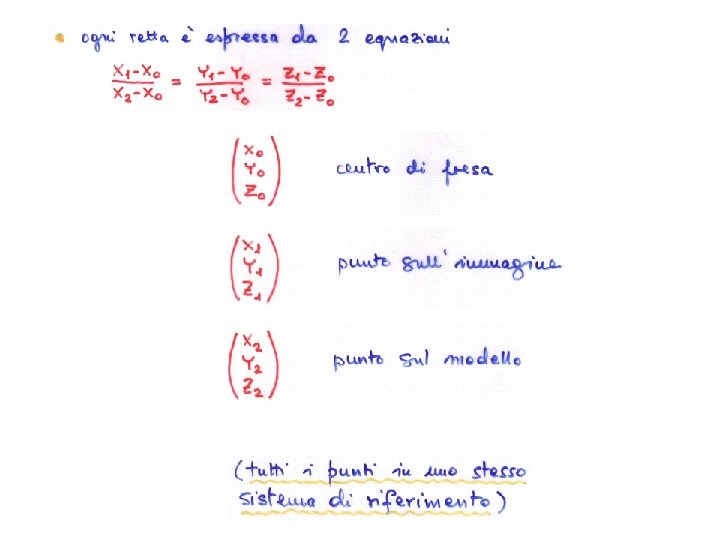 • ogni retta è espressa da 2 equazioni
X1-X0 / X2-X0 = Y1-Y0 / Y2-Y0 = Z1-Z0 / Z2-Z0
(X0 Y0 Z0) centro di presa
(X1 Y1 Z1) punto sull'immagine
(X2 Y2 Z2) punto sul modello
(tutti i punti in uno stesso
sistema di riferimento)